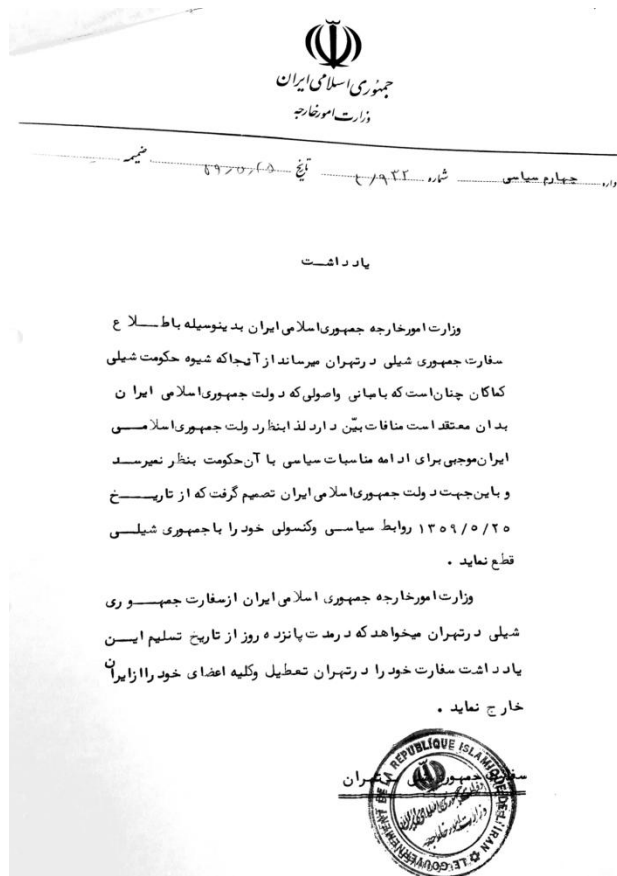 جمهوری اسلامی ایران
وزارت امور خارجه
چهارم سیاسی شماره ۹۳۲ / ۴ تاریخ ۵۹/۵/۲۵ ضمیمه
یادداشت
وزارت امورخارجه جمهوری اسلامی ایران بدینوسیله باطلاع
سفارت جمهوری شیلی درتهران میرساند ازآنجاکه شیوه حکومت شیلی
کماکان چنان است که بامبانی واصولی که دولت جمهوری اسلامی ایران
بدان معتقد است منافات بیّن دارد لذا بنظر دولت جمهوری اسلامی
ایران موجبی برای ادامه مناسبات سیاسی با آن حکومت بنظر نمیرسد
و باین جهت دولت جمهوری اسلامی ایران تصمیم گرفت که از تاریخ
۱۳۵۹/۵/۲۵ روابط سیاسی وکنسولی خود را با جمهوری شیلی
قطع نماید .
وزارت امورخارجه جمهوری اسلامی ایران ازسفارت جمهوری
شیلی درتهران میخواهد که درمدت پانزده روز از تاریخ تسلیم این
یادداشت سفارت خود را درتهران تعطیل وکلیه اعضای خود را ازایران
خارج نماید .
سفارت جمهوری تهران
LE GOUVERNEMENT DE LA REPUBLIQUE ISLAMIQUE DE L'IRAN